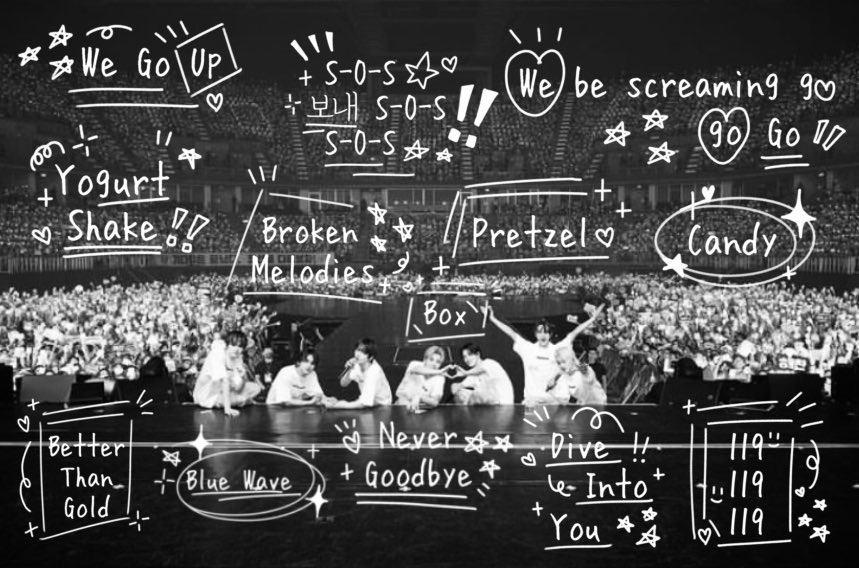 We Go Up
S-O-S
보내 S-O-S
S-O-S
We be screaming go
go Go !!
Yogurt
Shake !!
Broken
Melodies
Pretzel
Candy
Box
Better
Than
Gold
Blue Wave
Never
Goodbye
Dive !!
Into
You
119
119
119